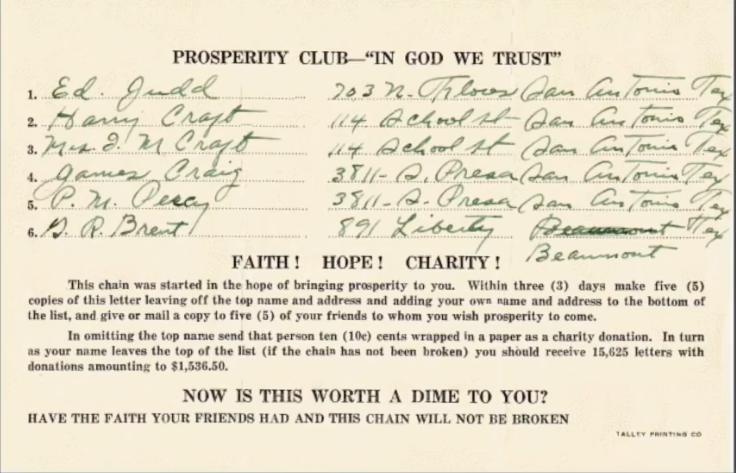 PROSPERITY CLUB—"IN GOD WE TRUST"
1. Ed. Judd 703 N. Flores San Antonio Tex
2. Harry Craft 114 School st San Antonio Tex
3. Mrs. J. M Craft 114 School st San Antonio Tex
4. James Craig 3811- S. Presa San Antonio Tex
5. P. M. Percy 3811- S. Presa San Antonio Tex
6. G. R. Brent 891 Liberty Beaumont Tex
Beaumont
FAITH! HOPE! CHARITY!
This chain was started in the hope of bringing prosperity to you. Within three (3) days make five (5)
copies of this letter leaving off the top name and address and adding your own name and address to the bottom of
the list, and give or mail a copy to five (5) of your friends to whom you wish prosperity to come.
In omitting the top name send that person ten (10c) cents wrapped in a paper as a charity donation. In turn
as your name leaves the top of the list (if the chain has not been broken) you should receive 15,625 letters with
donations amounting to $1,536.50.
NOW IS THIS WORTH A DIME TO YOU?
HAVE THE FAITH YOUR FRIENDS HAD AND THIS CHAIN WILL NOT BE BROKEN
TALLEY PRINTING CO